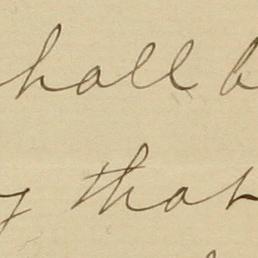 hall b
y that